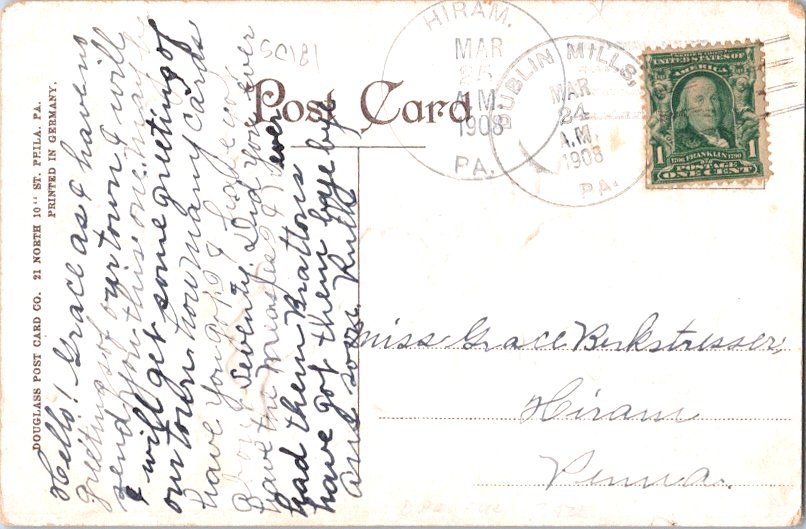 DOUGLASS POST CARD CO. 21 NORTH 10TH ST. PHILA. PA.
PRINTED IN GERMANY.
SC181
Post Card
HIRAM.
MAR
25
A.M.
1908
PA.
DUBLIN MILLS,
MAR
24
A.M.
1908
PA.
UNITED STATES OF
AMERICA
1
1706 FRANKLIN 1790
POSTAGE
ONE CENT
1
Hello! Grace as I have no
greetings of our town I will
send you this one maybe
I will get some greeting of
our town. how many cards
have you got? I have got
about seventy. Did you ever
have the measles? I never
had them Brattons
have got them. bye bye
ans soon. Ruth
Miss Grace Berkstresser,
Hiram
Penna.